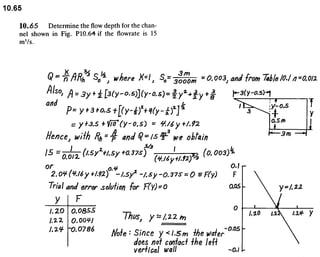 10.65
10.65 Determine the flow depth for the chan-
nel shown in Fig. P10.64 if the flowrate is 15
m³/s.
Q = K/n A R_h^(2/3) S_o^(1/2), where K=1, S_o = 3m/3000m = 0.003, and from Table 10.1 n=0.012
Also, A = 3y + ½[3(y-0.5)](y-0.5) = 3/2 y² + 3/2 y + 3/8
and
P = y + 3 + 0.5 + [(y-½)² + 9(y-½)²]^½
= y + 3.5 + √10 (y-0.5) = 4.16y + 1.92
Hence, with R_h = A/P and Q = 15 m³/s we obtain
15 = 1/0.012 (1.5y² + 1.5y + 0.375)^(5/3) 1/(4.16y + 1.92)^(2/3) (0.003)^½
or
2.04 (4.16y + 1.92)^0.4 - 1.5y² - 1.5y - 0.375 = 0 ≡ F(y)
Trial and error solution for F(y)=0
y F
1.20 0.0855
1.22 0.0041
1.24 -0.0786
Thus, y = 1.22 m
Note: Since y < 1.5m the water
does not contact the left
vertical wall
3(y-0.5)
y-0.5
3
1
0.5m
y
3m
0.1
F
0.05
y=1.22
0
1.20 1.22 1.24 y
-0.05
-0.1